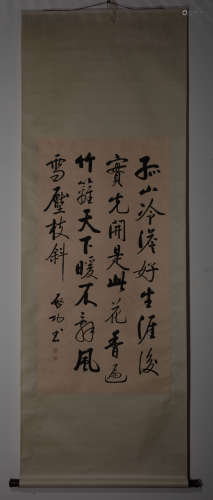 孤山冷澹好生涯後
實先開是此花香遍
竹籬天下暖不辭風
雪壓枝斜
啟功書